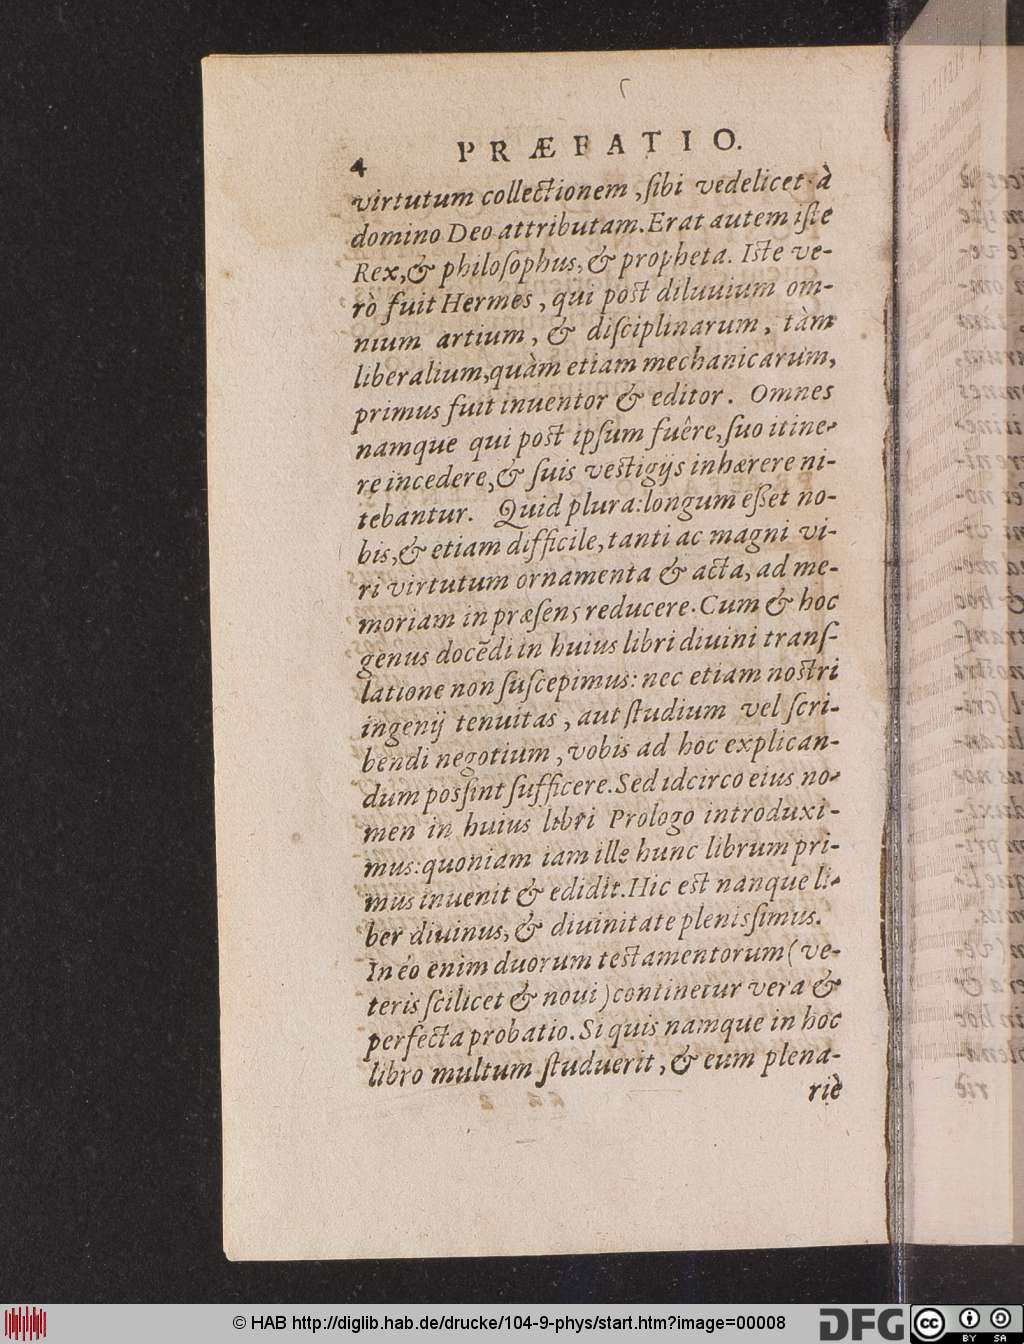 4
PRÆFATIO.
virtutum collectionem, ſibi vedelicet à
domino Deo attributam. Erat autem iſte
Rex, & philoſophus, & propheta. Iſte ve-
rò fuit Hermes, qui poſt diluuium om-
nium artium, & diſciplinarum, tàm
liberalium, quàm etiam mechanicarum,
primus fuit inuentor & editor. Omnes
namque qui poſt ipſum fuêre, ſuo itine-
re incedere, & ſuis veſtigijs inhærere ni-
tebantur. Quid plura: longum eſſet no-
bis, & etiam difficile, tanti ac magni vi-
ri virtutum ornamenta & acta, ad me-
moriam in præſens reducere. Cum & hoc
genus docẽdi in huius libri diuini tranſ-
latione non ſuſcepimus: nec etiam noſtri
ingenij tenuitas, aut ſtudium vel ſcri-
bendi negotium, vobis ad hoc explican-
dum poſſint ſufficere. Sed idcirco eius no-
men in huius libri Prologo introduxi-
mus: quoniam iam ille hunc librum pri-
mus inuenit & edidit. Hic eſt nanque li-
ber diuinus, & diuinitate pleniſſimus.
In eo enim duorum teſtamentorum (ve-
teris ſcilicet & noui) continetur vera &
perfecta probatio. Si quis namque in hoc
libro multum ſtuduerit, & eum plena-
riè
© HAB http://diglib.hab.de/drucke/104-9-phys/start.htm?image=00008
DFG
cc
BY SA